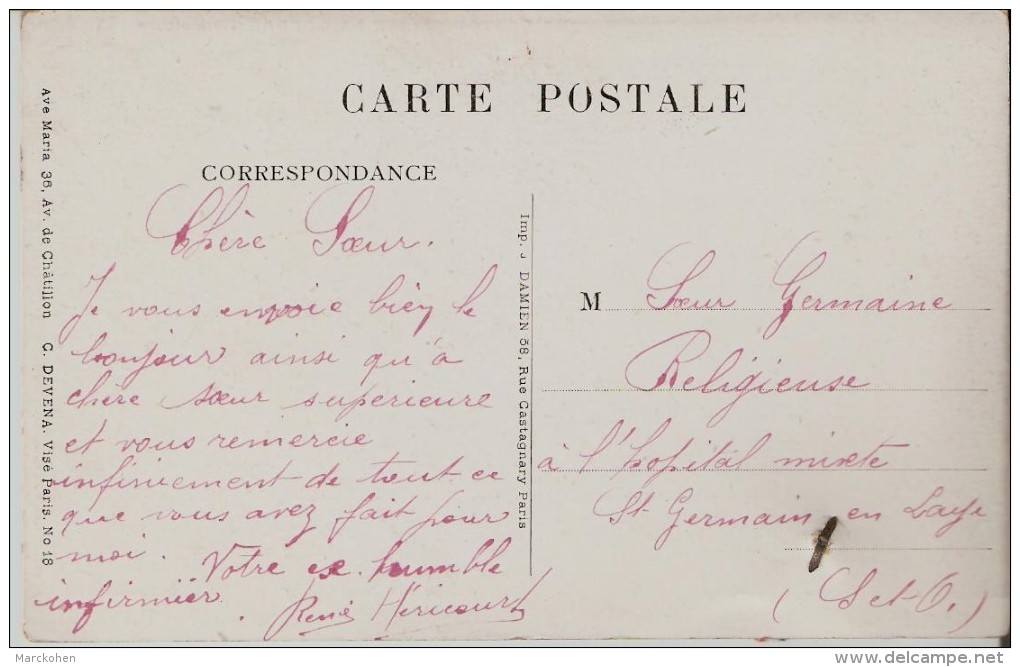 CARTE POSTALE
CORRESPONDANCE
Chère Sœur.
Je vous envoie bien le
bonjour ainsi qu'à
chère sœur superieure
et vous remercie
infiniement de tout ce
que vous avez fait pour
moi.
Votre ex. humble
infirmier
René Hericourt
M Sœur Germaine
Religieuse
à l'hopital mixte
St Germain en Laye
(S et O.)
Ave Maria 36, Av. de Châtillon C. DEVENA. Visé Paris. No 18
Imp. J DAMIEN 58, Rue Castagnary Paris
Marckohen
delcampe.net